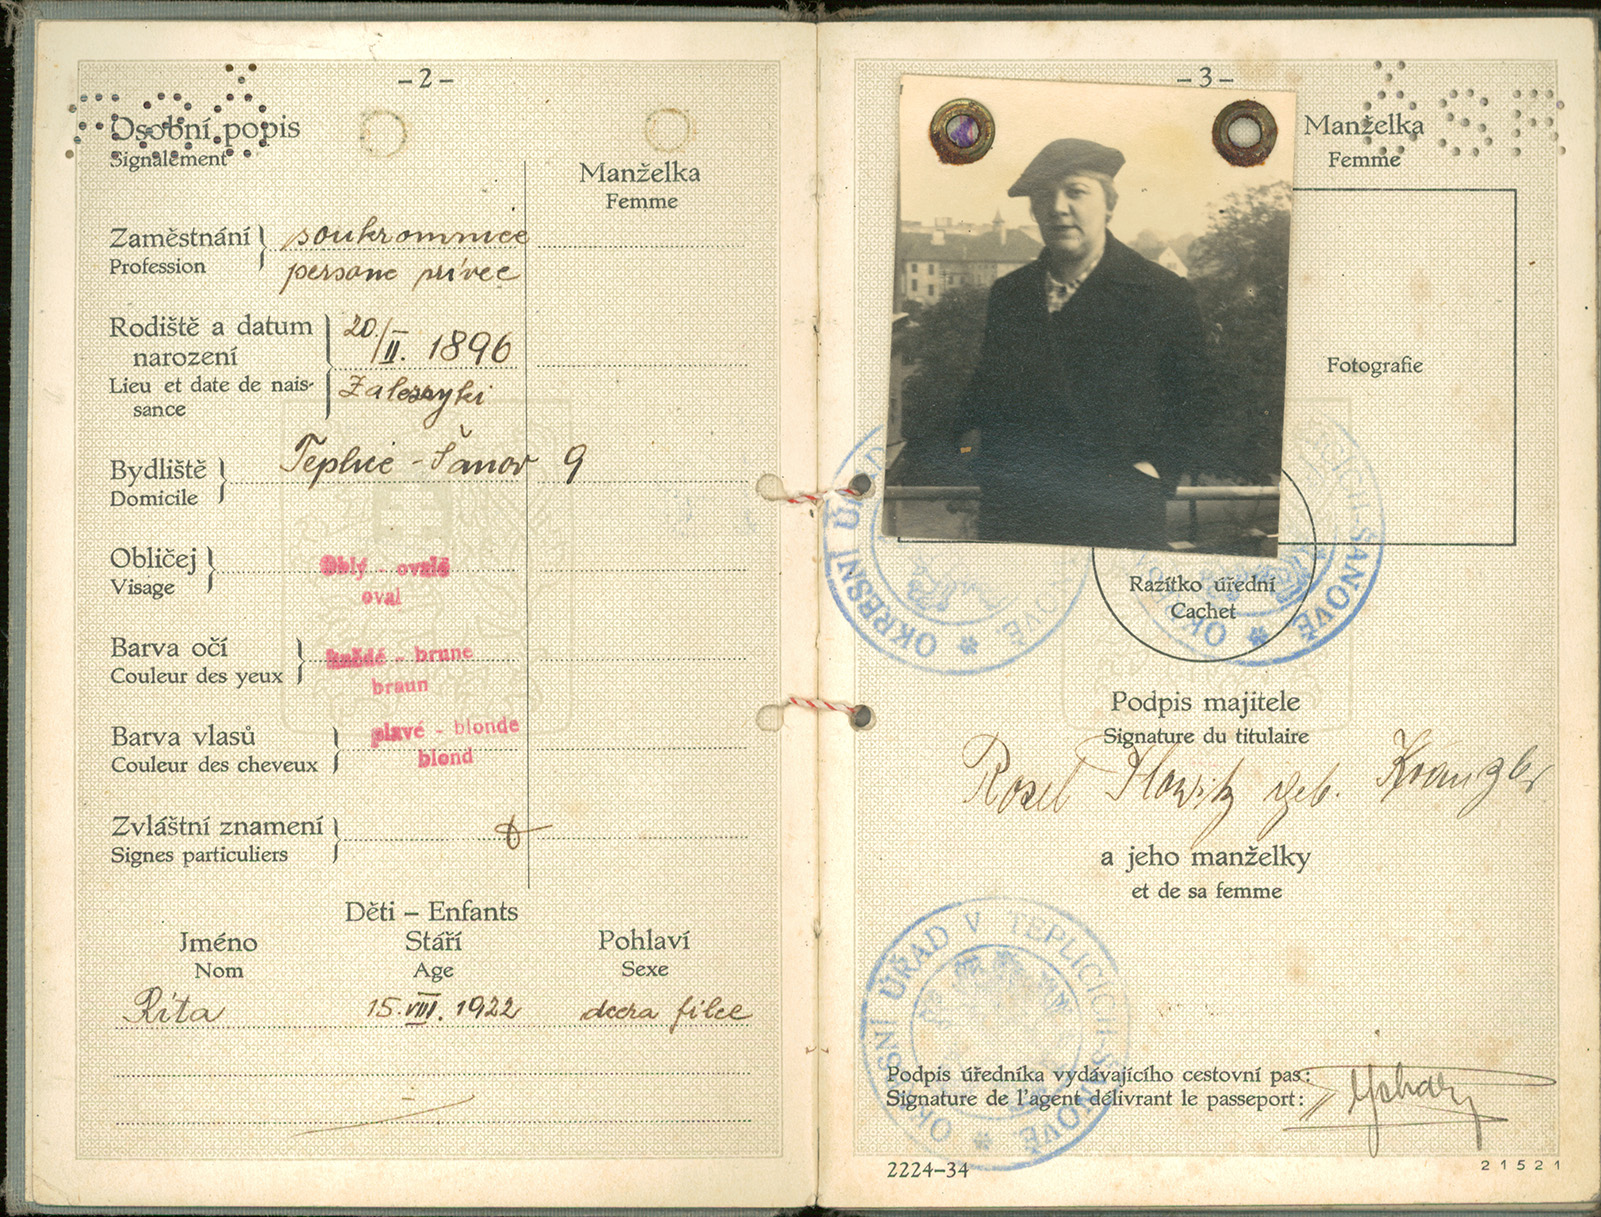 -2-
Osobní popis
Signalement
Manželka
Femme
Zaměstnání
Profession
soukromnice
persone privée
Rodiště a datum
narození
Lieu et date de nais-
sance
20./II. 1896
Zaleszyki
Bydliště
Domicile
Teplice-Šanov 9
Obličej
Visage
oblý - ovale
oval
Barva očí
Couleur des yeux
- brune
braun
Barva vlasů
Couleur des cheveux
plavé - blonde
blond
Zvláštní znamení
Signes particuliers
Děti – Enfants
Jméno Stáří Pohlaví
Nom Age Sexe
Rita 15.VIII. 1922 dcera
-3-
ČSR
Manželka
Femme
Fotografie
OKRESNÍ ÚŘAD
ŠANOVĚ
Razítko úřední
Cachet
Podpis majitele
Signature du titulaire
Rosel geb.
a jeho manželky
et de sa femme
OKRESNÍ ÚŘAD V TEPLICÍCH-ŠANOVĚ
Podpis úředníka vydávajícího cestovní pas:
Signature de l'agent délivrant le passeport:
2224-34
21521